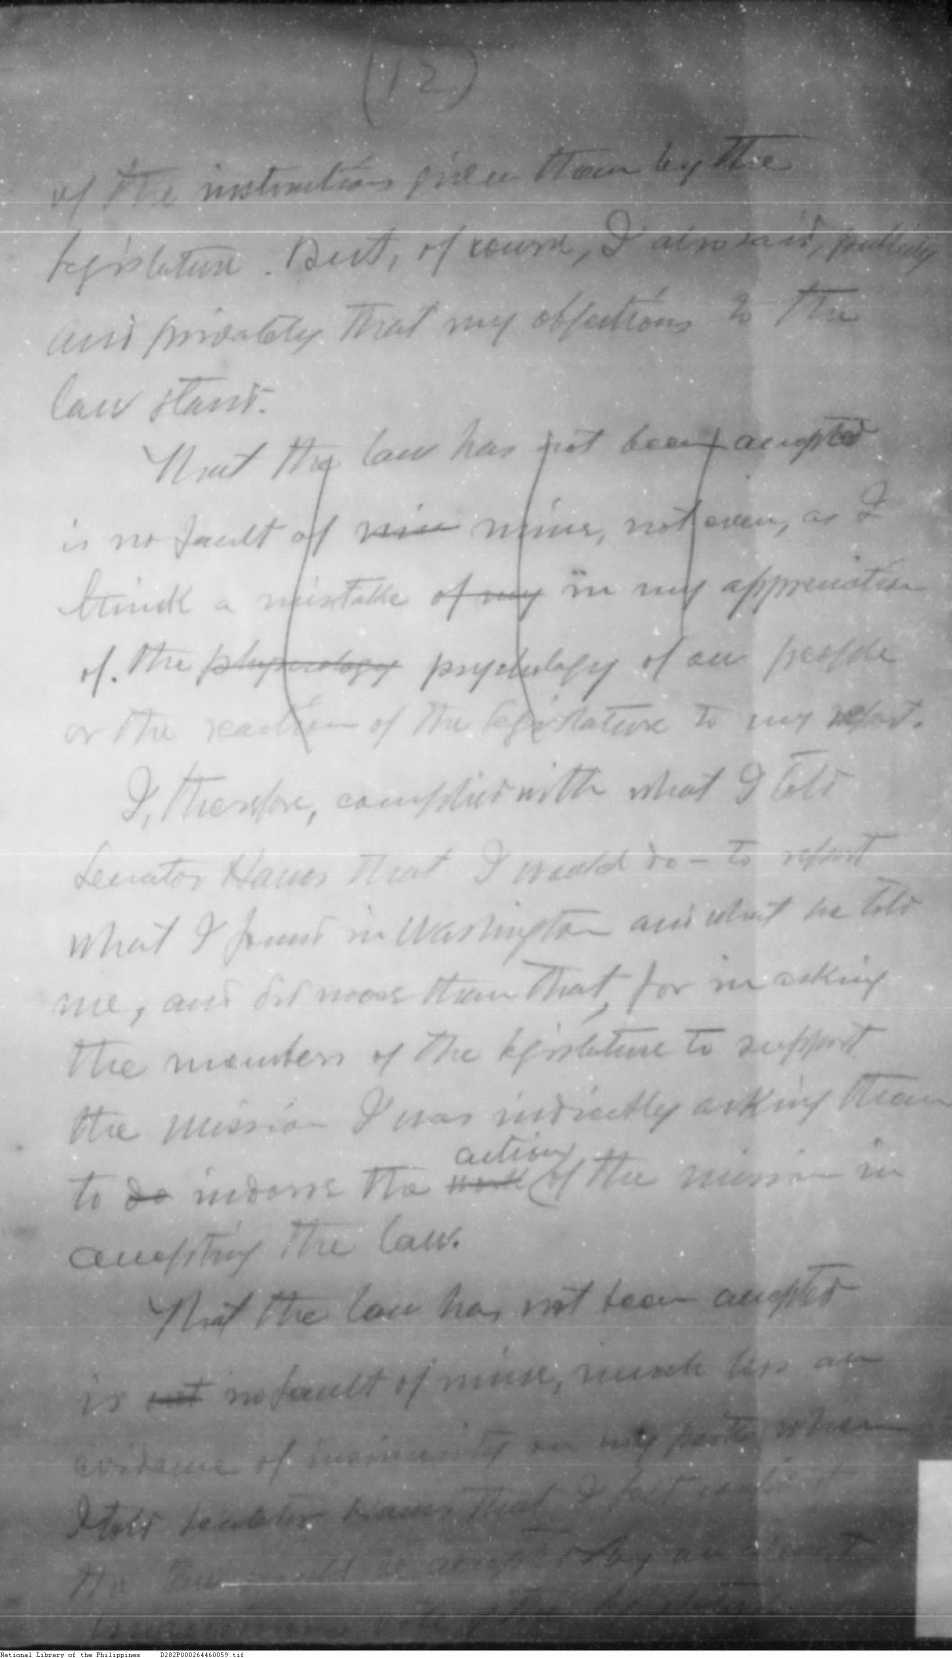 (12)
of the instructions given them by the
legislature. But, of course, I also said, publicly
and privately that my objections to the
law stand.
That the law has not been accepted
is no fault of mine, not even, as I
think a mistake of my in my appreciation
of the physcology psychology of our people
or the reaction of the legislature to my report.
I, therefore, complied with what I told
Senator Hawes that I would do – to report
what I found in Washington and what he told
me, and did more than that, for in asking
the members of the legislature to support
the mission I was indirectly asking them
action
to do indorse the work of the mission in
accepting the law.
That the law has not been accepted
is not no fault of mine, much less an
evidence of insincerity on my part, when
I told Senator Hawes that I felt
the law would be accepted by an almost
unanimous vote of the legislature
National Library of the Philippines D282P000264460059.tif